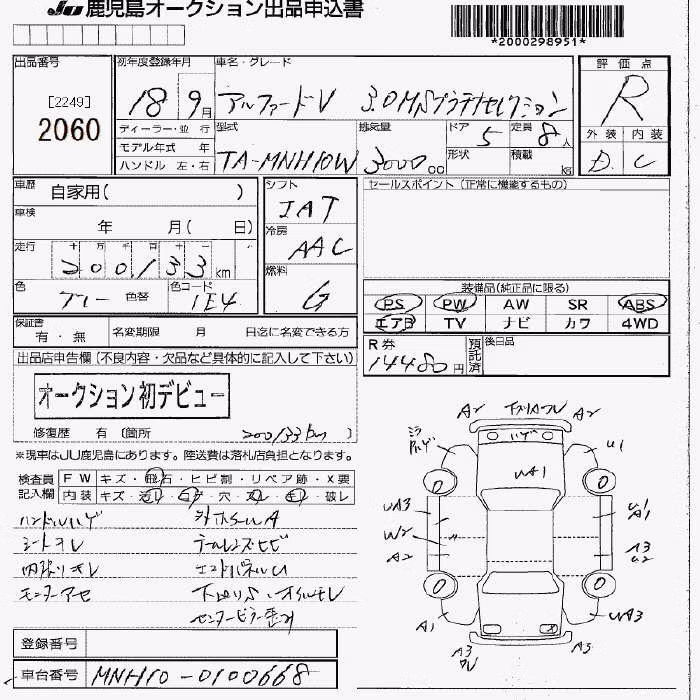 JU 鹿児島オークション出品申込書
*2000298951*
出品番号 初年度登録年月 車名・グレード 評価点
[2249]
2060
18 9月 アルファードV 3.0MSプラチナセレクション R
ディーラー・並行 型式 排気量 ドア 5 定員 8人 外装 内装
モデル年式 年 形状 積載 kg
ハンドル 左・右 TA-MNH10W 3000cc D C
車歴 自家用( ) シフト IAT セールスポイント (正常に機能するもの)
車検 年 月( 日) 冷房 AAC
走行 十 万 千 百 十 一
200133km 燃料 G
色 グレー 色替 色コード 1E4
装備品(純正品に限る)
PS PW AW SR ABS
エアB TV ナビ カワ 4WD
保証書 有・無 名変期限 月 日迄に名変できる方
R券 14480円 預託済 後日品
出品店申告欄(不良内容・欠品など具体的に記入して下さい)
オークション初デビュー
修復歴 有 (箇所 200133km )
※現車はJU鹿児島にあります。陸送費は落札店負担となります。
検査員記入欄
FW キズ・飛石・ヒビ割・リペア跡・X要
内装 キズ・ ・ ・穴・ ・ ・破レ
ハンドルハゲ 外ホイールA
シートヨレ テールレンズヒビ
内張りヨレ エンドパネルU
モニターアセ
登録番号
車台番号 MNH10-0100668
A2 A2
ハゲ
U1
UA1
0 0
UA3 U1 A1
W2
A2 A3 U2
0 0
A1 UA3
A3 A3
X